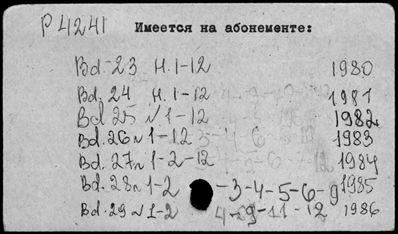 P 4241 Имеется на абонементе:
Bd. 23 H. 1-12 1980
Bd. 24 H. 1-12 1981
Bd 25 N 1-12 1982
Bd. 26 N 1-12 1983
Bd. 27 N 1-2-12 1984
Bd. 28 N 1-2 -3-4-5-6-9 1985
Bd. 29 N 1-2 4-9-11-12 1986